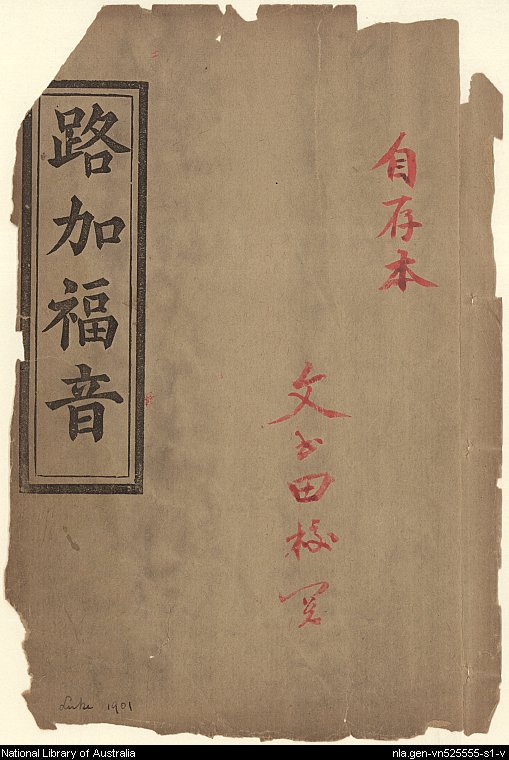 路加福音
自存本
文书田校阅
Luke 1901
National Library of Australia
nla.gen-vn525555-s1-v